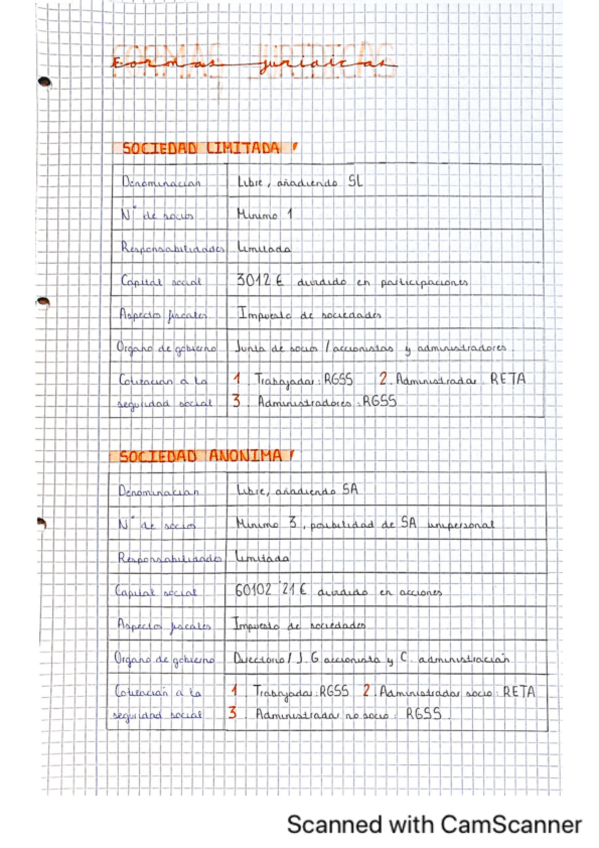 FORMAS JURIDICAS
Formas juridicas
SOCIEDAD LIMITADA
Denominacion Libre, añadiendo SL
Nº de socios Minimo 1
Responsabilidades Limitada
Capital social 3012 € dividido en participaciones
Aspectos fiscales Impuesto de sociedades
Organo de gobierno Junta de socios / accionistas y administradores
Cotizacion a la 1. Trabajador: RGSS 2. Administrador: RETA
seguridad social 3. Administradores: RGSS
SOCIEDAD ANONIMA
Denominacion Libre, añadiendo SA
Nº de socios Minimo 3, posibilidad de SA unipersonal
Responsabilidades Limitada
Capital social 60102'21 € dividido en acciones
Aspectos fiscales Impuesto de sociedades
Organo de gobierno Directorio / J. G accionista y C. administración
Cotizacion a la 1. Trabajador: RGSS 2. Administrador socio: RETA
seguridad social 3. Administrador no socio: RGSS
Scanned with CamScanner